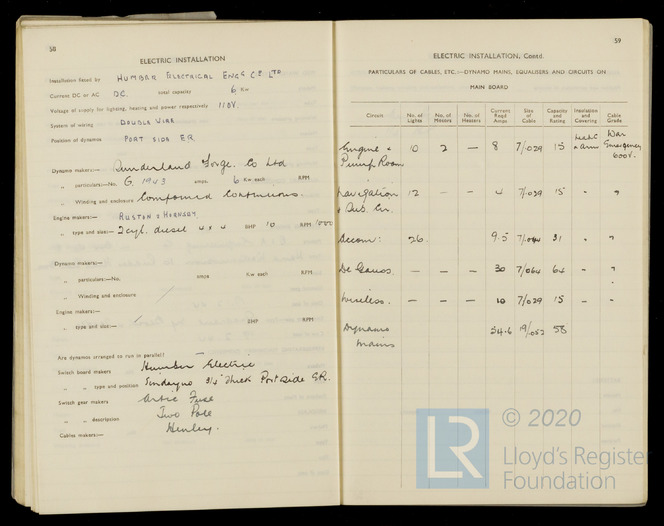 58
ELECTRIC INSTALLATION
Installation fitted by HUMBER ELECTRICAL ENGG CO LTD
Current DC or AC DC. total capacity 6 Kw
Voltage of supply for lighting, heating and power respectively 110V.
System of wiring DOUBLE WIRE
Position of dynamos PORT SIDE ER
Dynamo makers:— Sunderland Forge. Co Ltd
„ particulars:—No. G. 1943 amps. 6 Kw each RPM
„ Winding and enclosure Compound Continuous.
Engine makers:— RUSTON & HORNSBY
„ type and size:— 2 cyl. diesel 4 x 4 BHP RPM
Dynamo makers:—
„ particulars:—No. amps Kw each RPM
„ Winding and enclosure
Engine makers:—
„ type and size:— BHP RPM
Are dynamos arranged to run in parallel?
Switch board makers Humber Electric
„ „ type and position Sindanyo 3/4" thick Port side E.R.
Switch gear makers Artic Fuse
„ „ description Two Pole
Cables makers:— Henley.
59
ELECTRIC INSTALLATION, Contd.
PARTICULARS OF CABLES, ETC.:—DYNAMO MAINS, EQUALISERS AND CIRCUITS ON
MAIN BOARD
Circuit No. of Lights No. of Motors No. of Heaters Current Reqd Amps Size of Cable Capacity and Rating Insulation and Covering Cable Grade
Engine & Pump Room 10 2 — 8 7/029 15 & arm War Emergency 600V.
Navigation 12 — — 4 7/029 15 " "
Accom: 26 9.5 7/044 31 " "
De Gauss. — — — 30 7/064 64 " "
Wireless. — — — 10 7/029 15 — "
Dynamo Mains 54.6 19/052 58
© 2020
LR Lloyd's Register
Foundation